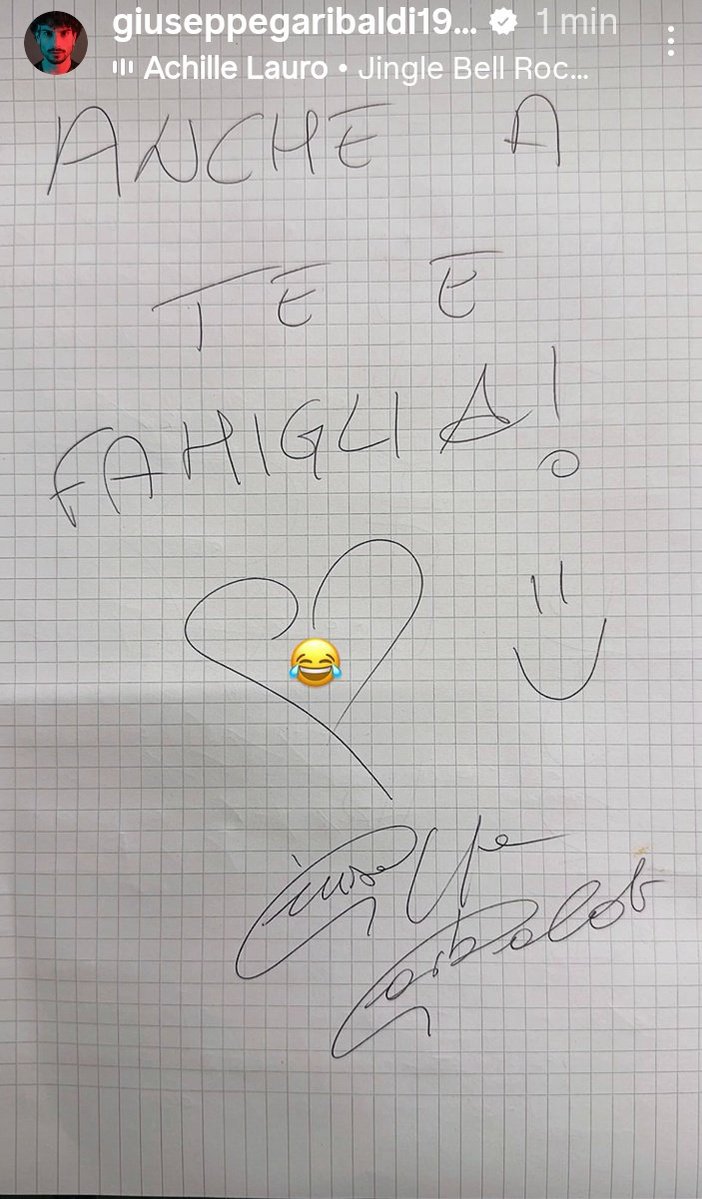 giuseppegaribaldi19...
1 min
Achille Lauro • Jingle Bell Roc...
ANCHE A
TE E
FAMIGLIA!
Giuseppe
Garibaldi